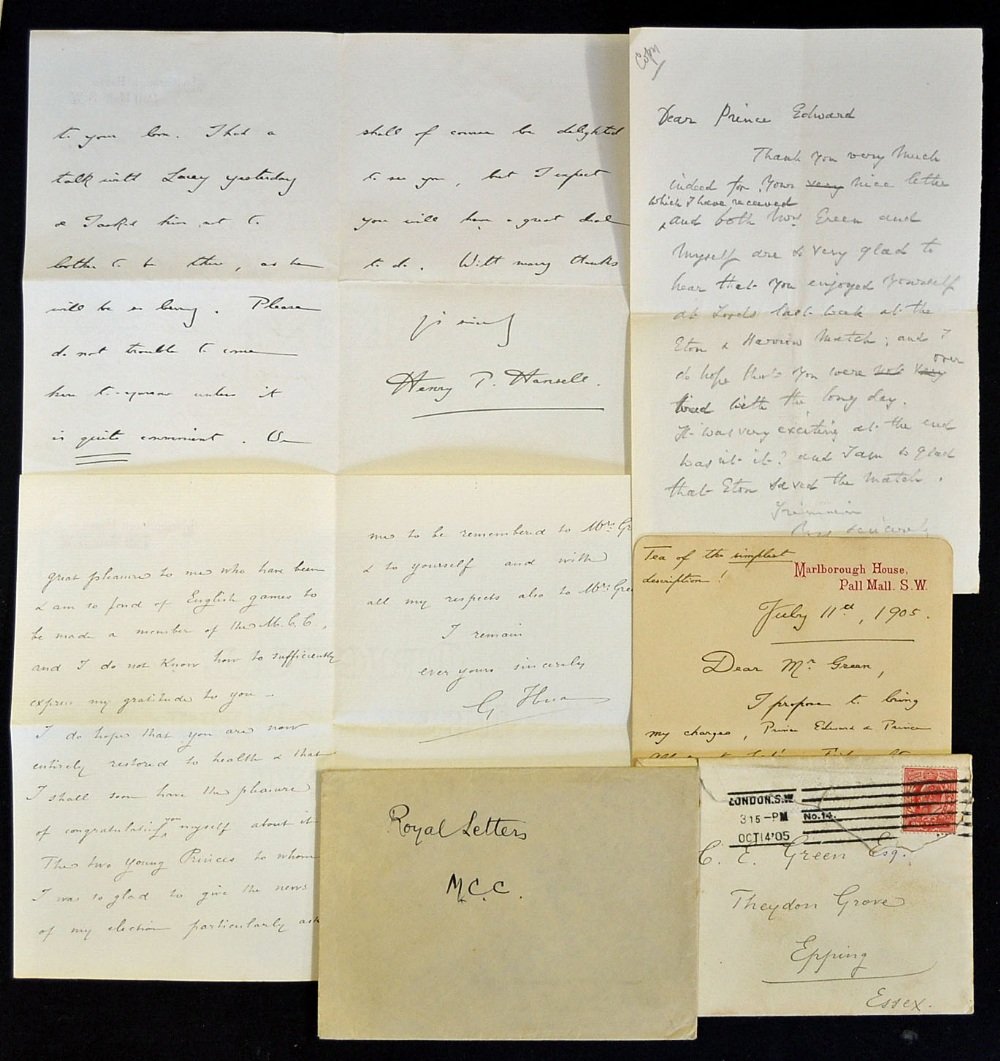 to your box. I had a
talk with Lacey yesterday
& I asked him not to
bother to be there, as he
will be so busy. Please
do not trouble to come
here to-morrow unless it
is quite convenient. We
shall of course be delighted
to see you, but I expect
you will have a great deal
to do. With many thanks
Henry P. Hansell.
Copy
Dear Prince Edward
Thank you very much
indeed for your very nice letter
which I have received
and both Mrs. Green and
Myself are so very glad to
hear that you enjoyed yourself
at Lords last week at the
Eton & Harrow Match; and I
do hope that you were not very over
tired with the long day.
It was very exciting at the end
wasn't it? and I am so glad
that Eton saved the Match.
I remain
great pleasure to me who have been
& am so fond of English games to
be made a member of the M.C.C.,
and I do not know how to sufficiently
express my gratitude to you -
I do hope that you are now
entirely restored to health & that
I shall soon have the pleasure
of congratulating you myself about it.
The two young Princes to whom
I was so glad to give the news
of my election particularly ask
me to be remembered to Mrs. Gr
& to yourself and with
all my respects also to Mrs. Gree
I remain
ever yours sincerely
G. Hua
Tea of the simplest
description!
Marlborough House,
Pall Mall. S.W.
July 11th, 1905.
Dear Mr Green,
I propose to bring
my charges, Prince Edward & Prince
Royal Letters
M.C.C.
LONDON.S.W
3 15-PM No.14.
OCT 14'05
C. E. Green Esq.
Theydon Grove
Epping
Essex.